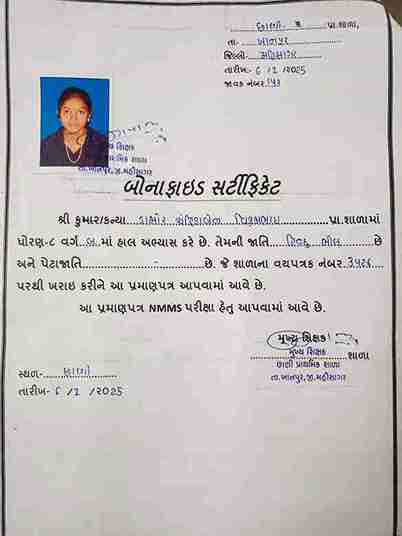 પ્રા.શાળા,
તા.- ખાનપુર
જિલ્લો- મહીસાગર
તારીખ- 6/1/2025
જાવક નંબર
મુખ્ય શિક્ષક
પ્રાથમિક શાળા
તા.ખાનપુર,જી.મહીસાગર
બોનાફાઇડ સર્ટીફિકેટ
શ્રી કુમાર/કન્યા ડામોર પ્રા.શાળામાં
ધોરણ-૮ વર્ગ બ માં હાલ અભ્યાસ કરે છે. તેમની જાતિ હિન્દુ ભીલ છે
અને પેટાજાતિ - છે. જે શાળાના વયપત્રક નંબર
પરથી ખરાઇ કરીને આ પ્રમાણપત્ર આપવામાં આવે છે.
આ પ્રમાણપત્ર NMMS પરીક્ષા હેતુ આપવામાં આવે છે.
મુખ્ય શિક્ષક
મુખ્ય શિક્ષક શાળા
છાણી પ્રાથમિક શાળા
તા.ખાનપુર,જી.મહીસાગર
સ્થળ- છાણી
તારીખ- 6/1/2025